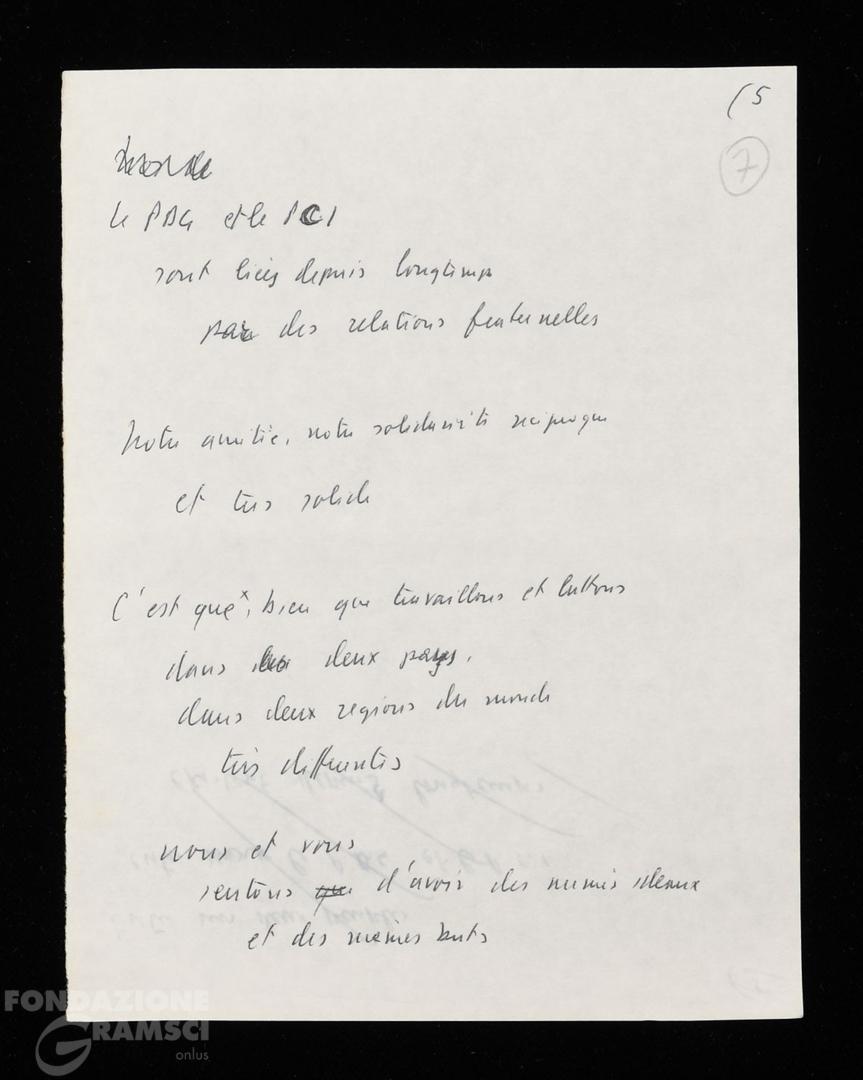 (5
7
Le PDG et le PCI
sont liés depuis longtimps
par des relations fraternelles
Notre amitié, notre solidarité reciproque
et tres solide
C'est que x, bien que travaillons et luttons
dans deux pays,
dans deux regions du monde
très differentes
nous et vous
sentons d'avoir des mêmes ideaux
et des mêmes buts
FONDAZIONE
GRAMSCI
onlus